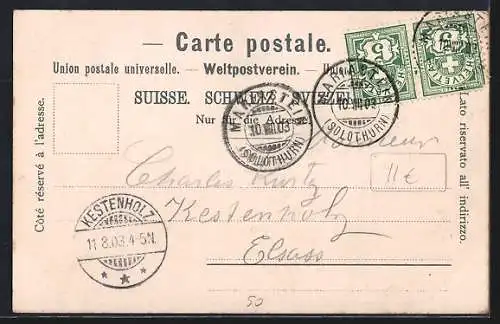 — Carte postale. —
Union postale universelle. — Weltpostverein. —
SUISSE. SCHWEIZ. SVIZZERA.
Nur für die Adresse
Côté réservé à l'adresse.
Lato riservato all' indirizzo.
5 5
HELVETIA
(SOLOTHURN)
10.VIII.03
10.VIII.03
(SOLOTHURN)
11 £
Charles Kurtz
Kestenholz
Elsass
KESTENHOLZ
11.8.03.4-5N.
50